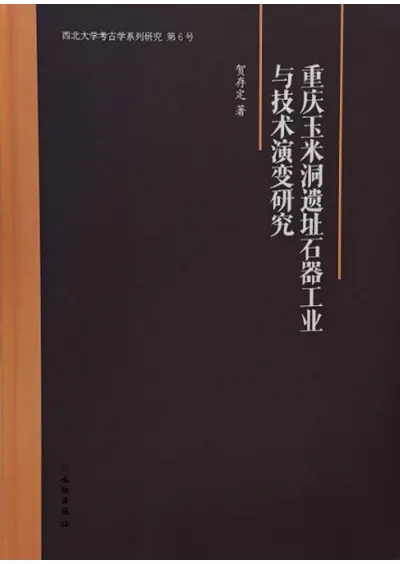 西北大学考古学系列研究 第6号
重庆玉米洞遗址石器工业
与技术演变研究
贺存定 著
文物出版社